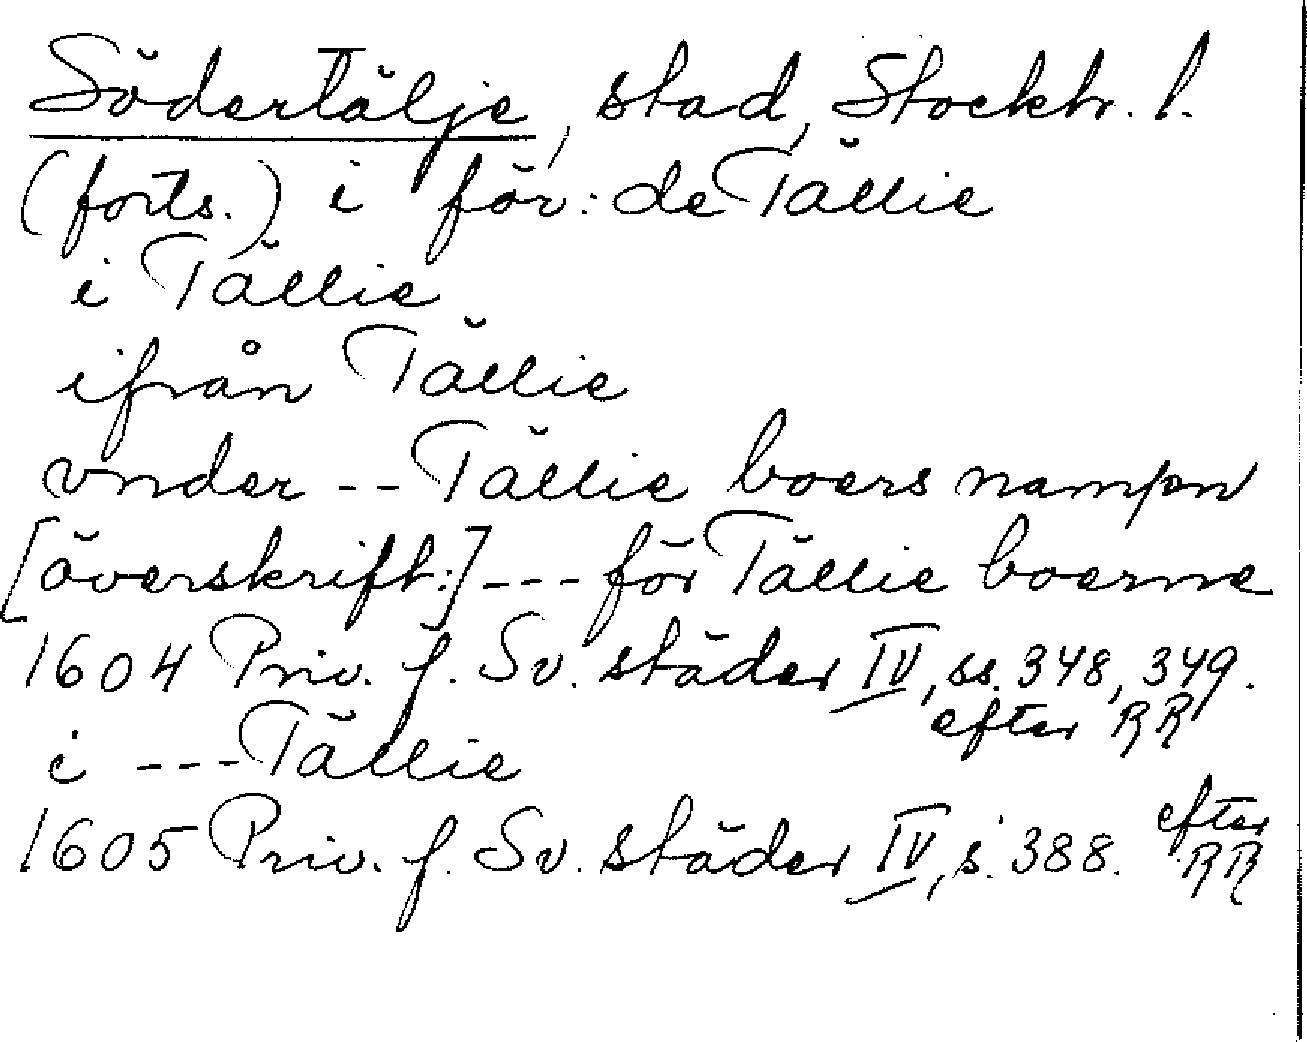 Södertälje, stad, Stockh. l.
(forts.) i för: de Tällie
i Tällie
ifrån Tällie
vnder -- Tällie boers nampn
[överskrift:] --- för Tällie boerne
1604 Priv. f. Sv. städer IV, ss. 348, 349.
efter RR
i --- Tällie
1605 Priv. f. Sv. städer IV, s. 388. efter
RR